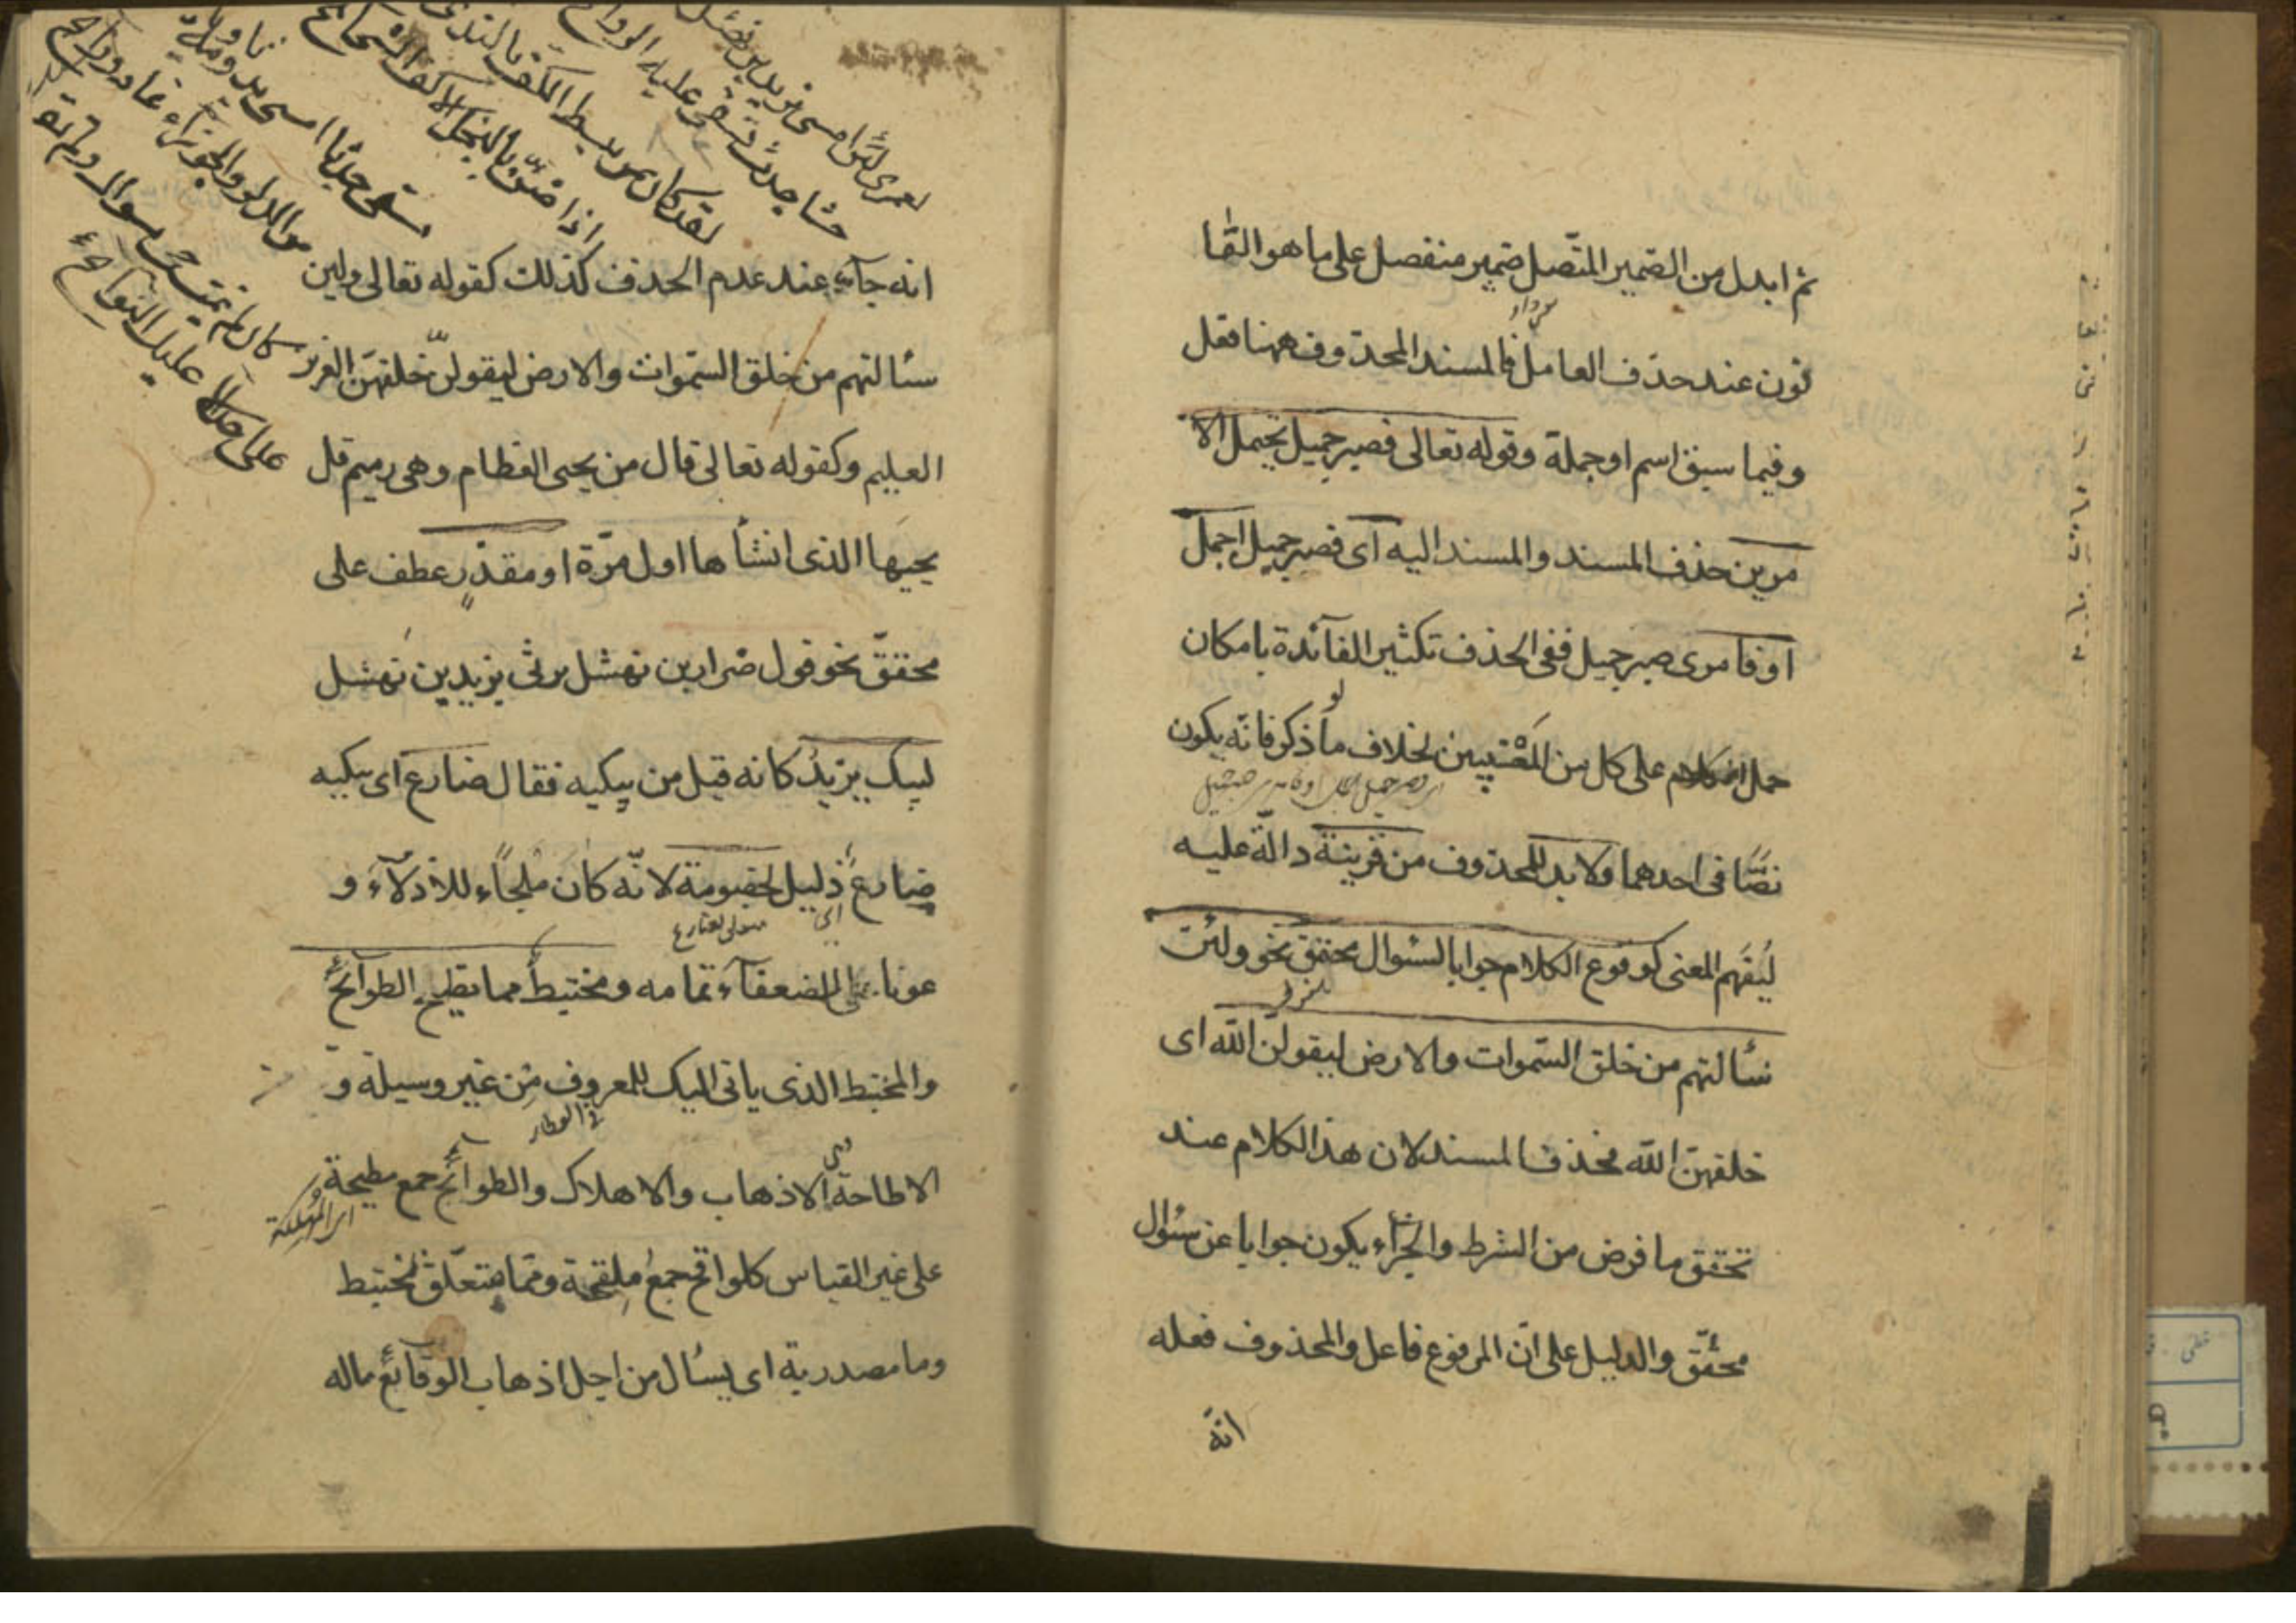 ثم ابدل من الضمير المتّصل ضمير منفصل على ما هو القا
نون عند حذف العامل فالمسند المحذوف ههنا فعل
وفيما سبق اسم او جملة وقوله تعالى فصبر جميل يحتمل الا
مرين حذف المسند والمسند اليه اى فصبر جميل اجمل
او فامرى صبر جميل ففى الحذف تكثير الفآئدة بامكان
حمل الكلام على كل من المعنيين بخلاف ما لو ذكر فانّه يكون
نصًّا فى احدهما ولا بد للمحذوف من قرينة دالّة عليه
ليُفهَم المعنى كوقوع الكلام جوابا لسئوال محقق نحو ولئن
سئالتهم من خلق السّموات والارض ليقولنّ اللّه اى
خلقهنّ اللّه فحذف المسند لان هذا الكلام عند
تحقق ما فرض من الشرط والجزآء يكون جوابا عن سئوال
محقّق والدليل على انّ المرفوع فاعل والمحذوف فعله
انّه
لعمرى لئن امسى يزيد بن نهشل
حشا جدث تسفى عليه الروائح
لقد كان ممن يبسط الكف بالندى
اذا ضنّ بالبخل الاكف الشحائح
انه جآء عند عدم الحذف كذلك كقوله تعالى ولئن
سئالتهم من خلق السّموات والارض ليقولنّ خلقهنّ العزيز
العليم وكقوله تعالى قال من يحيى العظام وهى رميم قل
يحييها الذى انشأها اول مرّة او مقدّرٍ عطف على
محقّق نحو قول ضرار بن نهشل يرثى يزيد بن نهشل
ليبك يزيدُ كانه قيل من يبكيه فقال ضارع اى يبكيه
ضارعٌ ذليل لخصومة لانّه كان ملجاًء للاذلّآء و
اى
متعلق بضارع
عونا للضعفآء تمامه ومختبطٌ مما تطيح الطوآئحُ
والمختبط الذى ياتى اليك للمعروف من غير وسيلة و
الاطاحة الاذهاب والاهلاك والطوآئح جمع مطيحة
اى المهلكة
على غير القياس كلواقح جمعُ ملقحة ومما متعلّق بمختبط
وما مصدرية اى يسئال من اجل اذهاب الوقآئع ماله